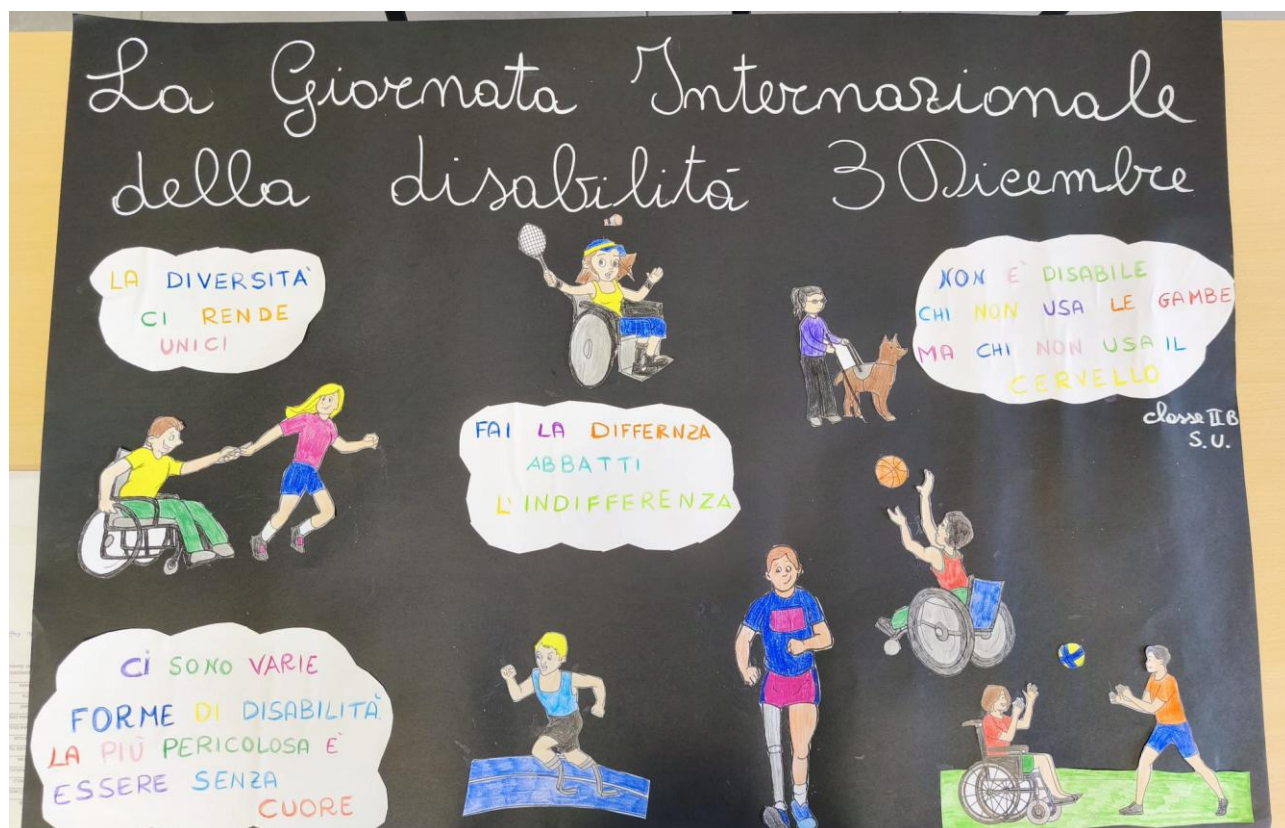 La Giornata Internazionale
della disabilitá 3 Dicembre
LA DIVERSITA'
CI RENDE
UNICI
NON E' DISABILE
CHI NON USA LE GAMBE
MA CHI NON USA IL
CERVELLO
classe II B
S. U.
FAI LA DIFFERNZA
ABBATTI
L'INDIFFERENZA
CI SONO VARIE
FORME DI DISABILITÀ
LA PIÙ PERICOLOSA E'
ESSERE SENZA
CUORE